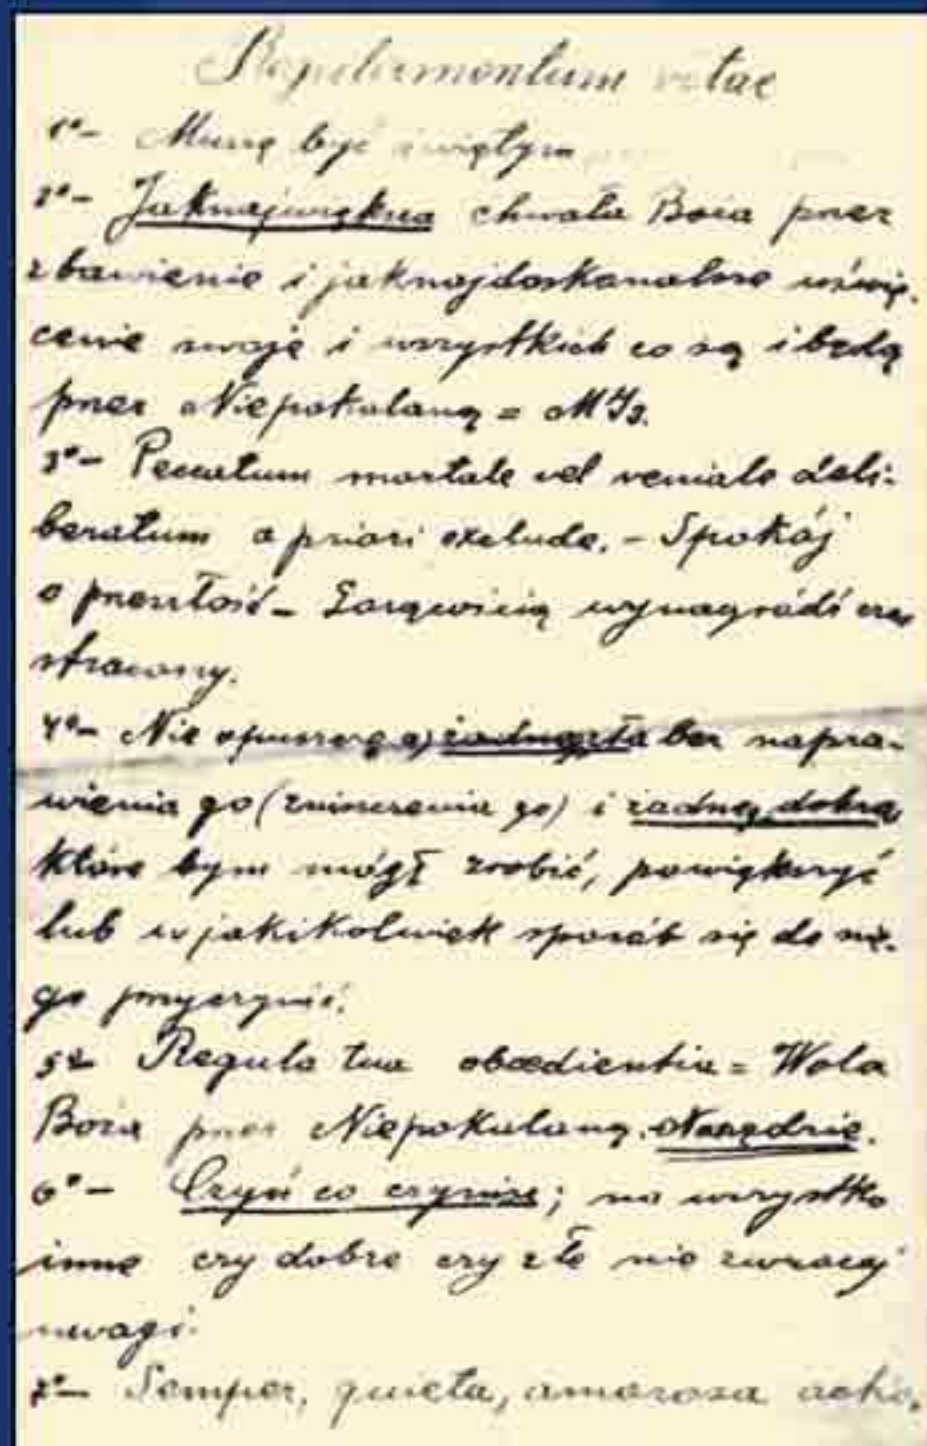 Regulamentum vitae
1°- Muszę być świętym
2°- Jaknajwiększa chwała Boża przez
zbawienie i jaknajdoskonalsze uświę-
cenie swoje i wszystkich co są i będą
przez Niepokalaną = MIs.
3°- Peccatum mortale vel veniale deli-
beratum a priori exclude. - Spokój
o przeszłość - Gorącością wynagródź czas
stracony.
4°- Nie opuszczę a) żadnego zła bez napra-
wienia go (zniszczenia go) i żadnego dobra,
które bym mógł zrobić, powiększyć
lub w jakikolwiek sposób się do nie-
go przyczynić.
5°- Regula tua obœdientia = Wola
Boża przez Niepokalaną. Narzędzie.
6°- Czyń co czynisz; na wszystko
inne czy dobre czy złe nie zwracaj
uwagi.
7°- Semper, quieta, amorosa actio.